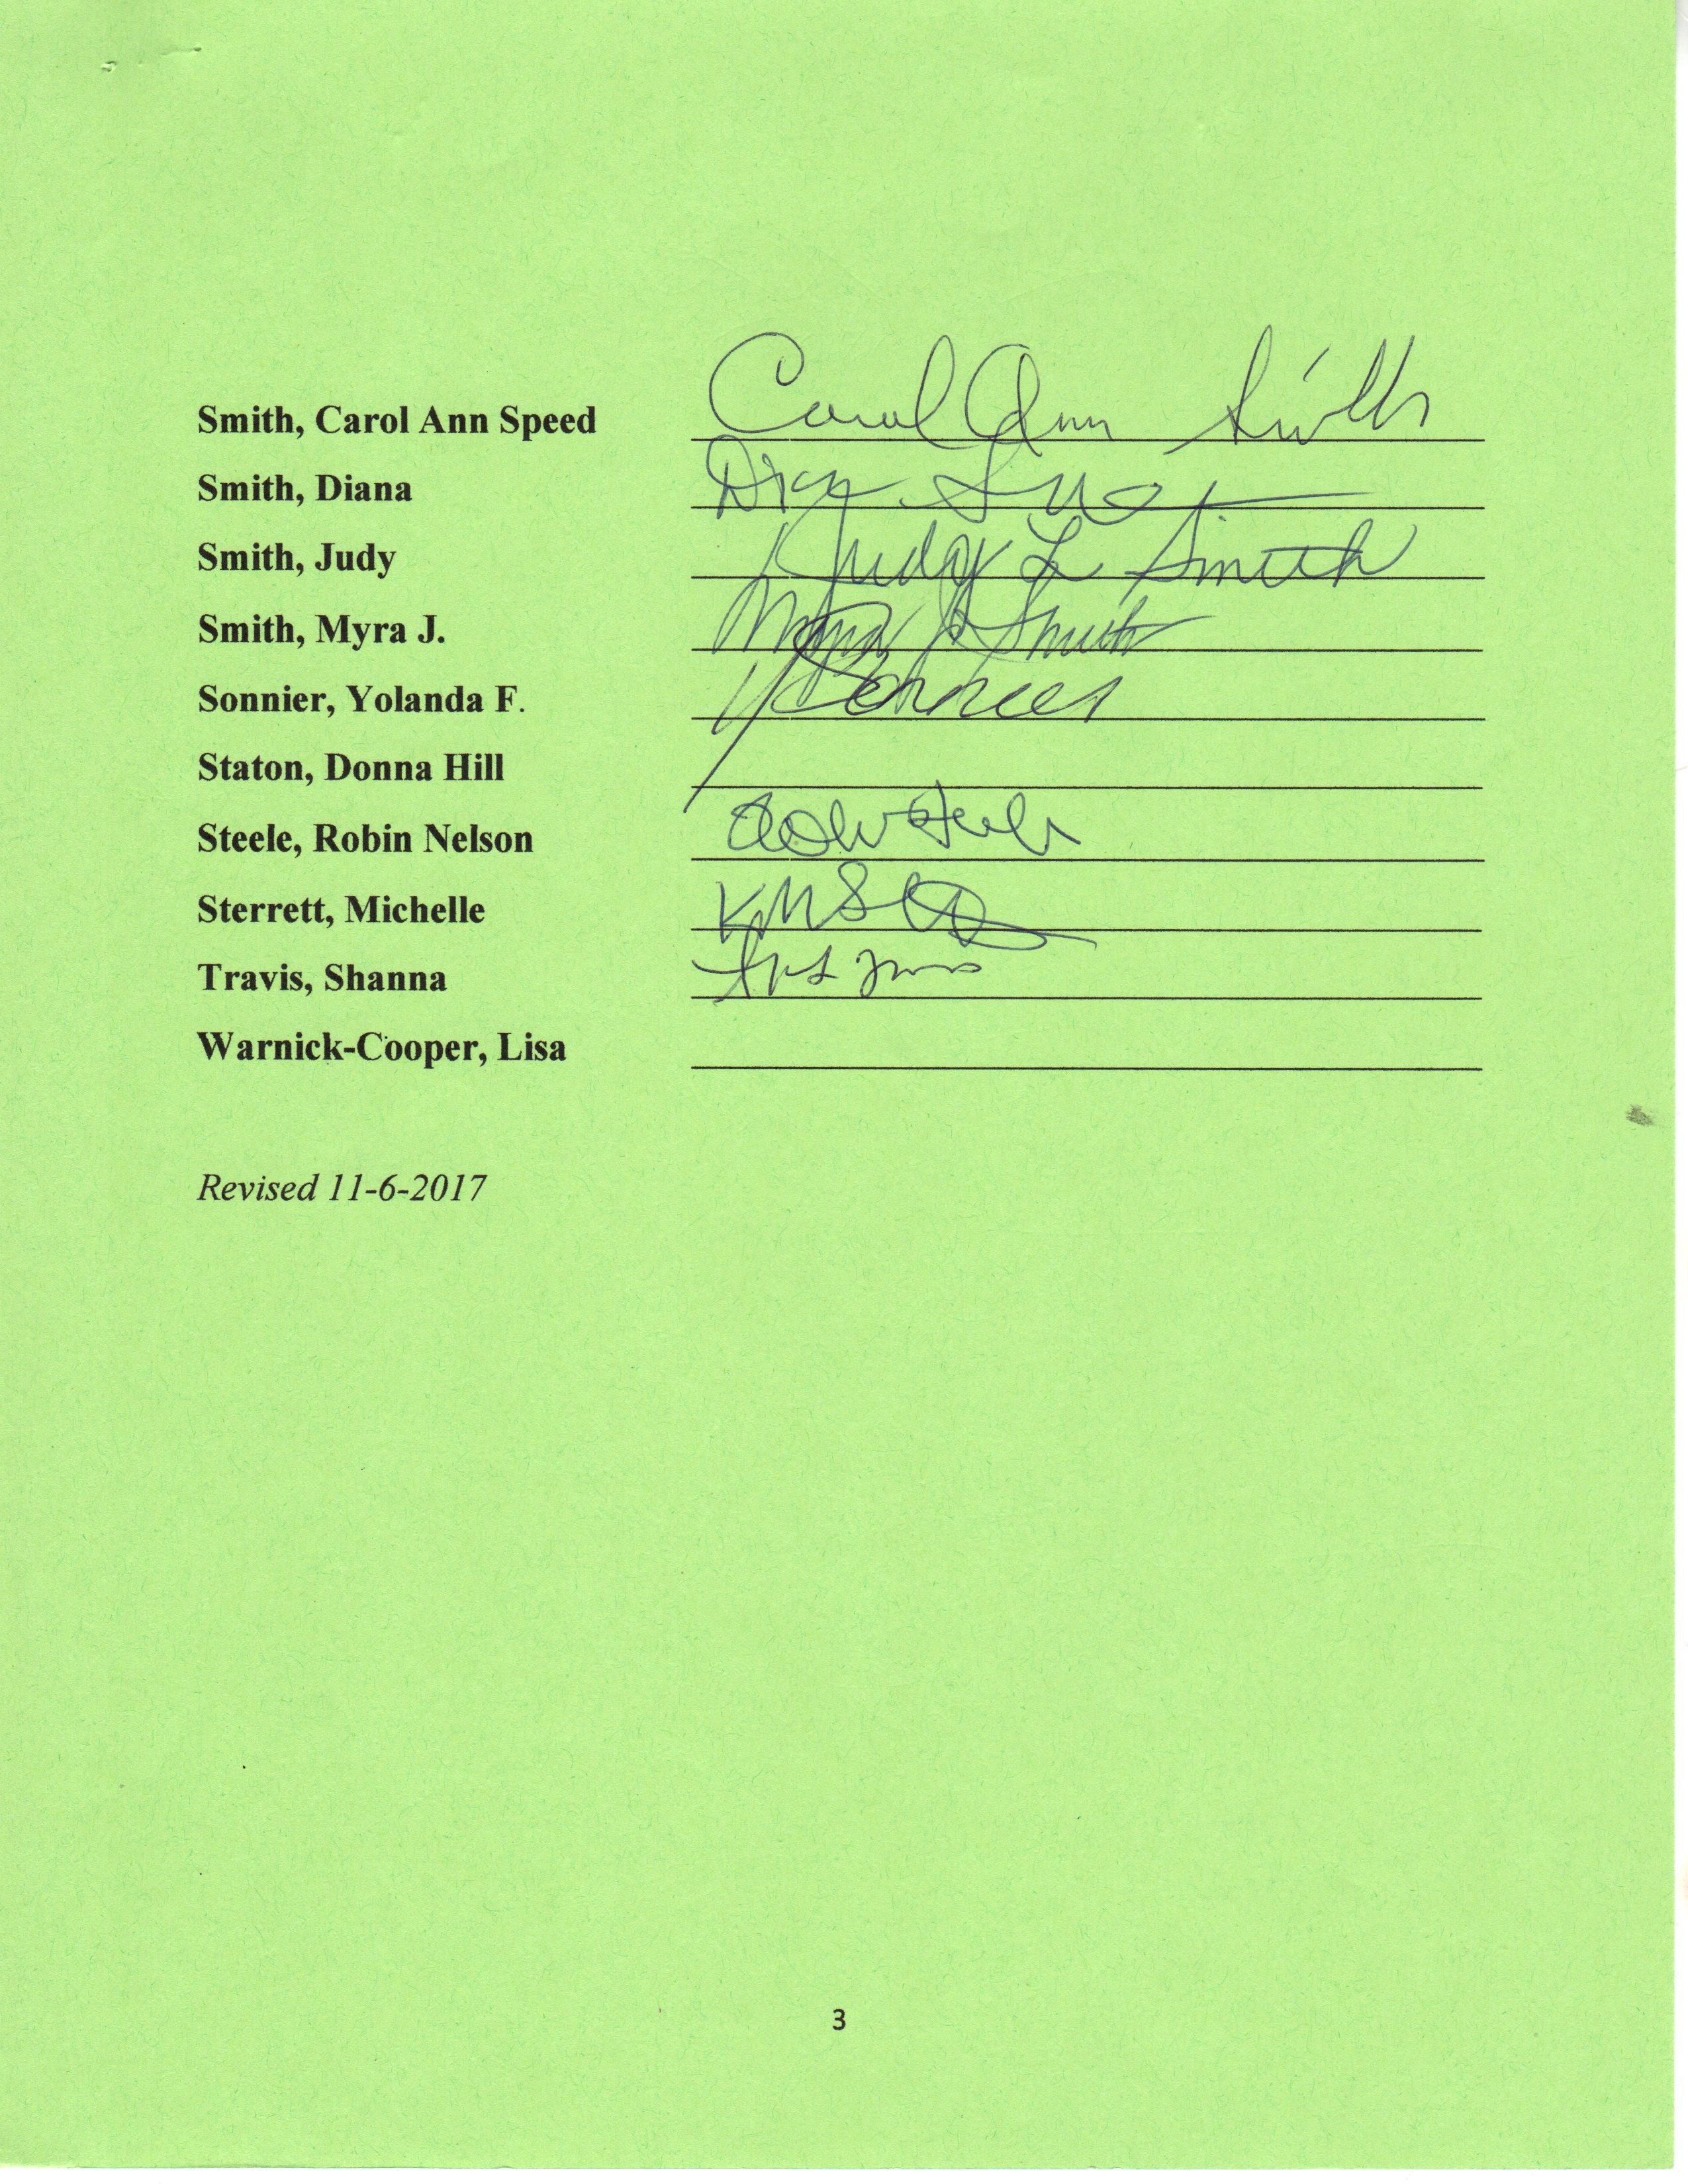 Smith, Carol Ann Speed Carol Ann Smith
Smith, Diana
Smith, Judy Judy L Smith
Smith, Myra J. Myra J. Smith
Sonnier, Yolanda F.
Staton, Donna Hill
Steele, Robin Nelson
Sterrett, Michelle
Travis, Shanna
Warnick-Cooper, Lisa
Revised 11-6-2017
3